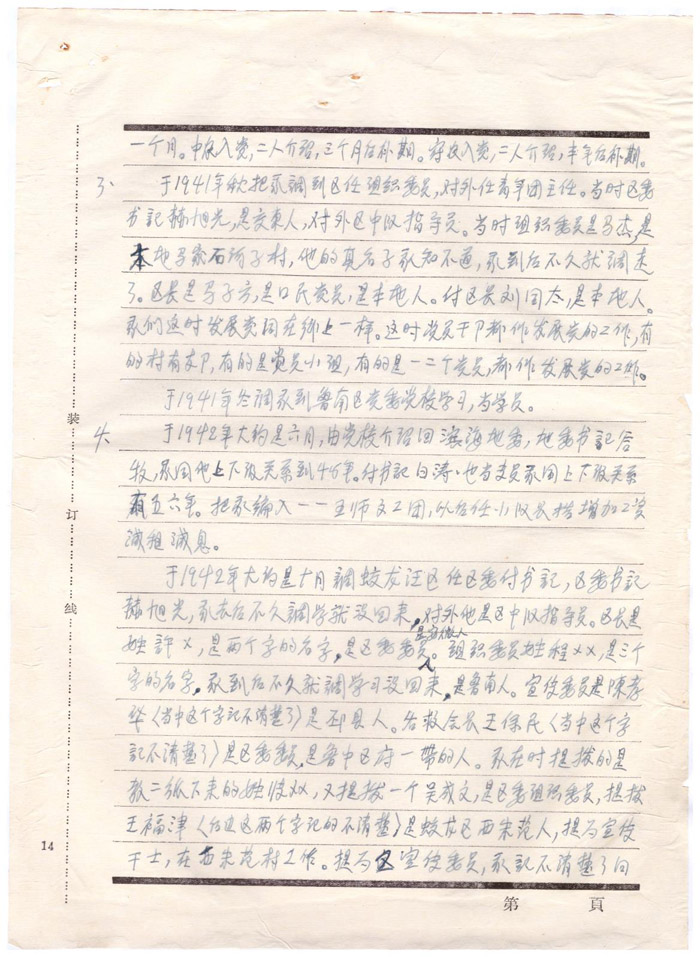 一个月。中农入党,二人介绍,三个月后补期。好农入党,二人介绍,半年后补期。
3、
于1941年秋把我調到区任组织委员,对外任青年团主任。当时区委
书記赫旭光,是胶东人,对外区中队指导员。当时组织委员是马杰,是
本地马家石河子村,他的真名字我知不道,我到后不久就調走
了。区长是马子方,是口民党员,是本地人。付区长刘同太,是本地人。
我们这时发展党同在乡上一样。这时党员干卩都作发展党的工作,有
的村有支卩,有的是党员小组,有的是一二个党员,都作发展党的工作。
于1941年冬調我到鲁南区党委党校学习,当学员。
4、
于1942年大约是六月,由党校介绍回滨海地委,地委书記谷
牧,我同他上下级关系到4个年。付书記白涛、也当支员我同上下级关系
有五六年。把我编入一一五师文工团,以后任小队长搭增加工资
减租减息。
于1942年大约是十月調蛟龙汪区任区委付书記,区委书記
赫旭光,我去后不久調学就没回来,对外他是区中队指导员。区长是
姓許×,是两个字的名字,是区委委员。组织委员姓程××,是三个
字的名字,我到后不久就調学习没回来,是鲁南人。宣传委员是陳孝
华〈当中这个字記不清楚了〉是邳县人。各救会长王保民〈当中这个字
記不清楚了〉是区委委员,是鲁中区府一带的人。我在时提拔的是
教二孤下来的姓 ××,又提拔一个吴成文,是区委组织委员,提拔
王福津〈后边这两个字记的不清楚〉是蛟龙区西朱范人,提为宣传
干士,在西朱范村工作。提为区宣传委员,我記不清楚了同
14
装
订
线
第 頁